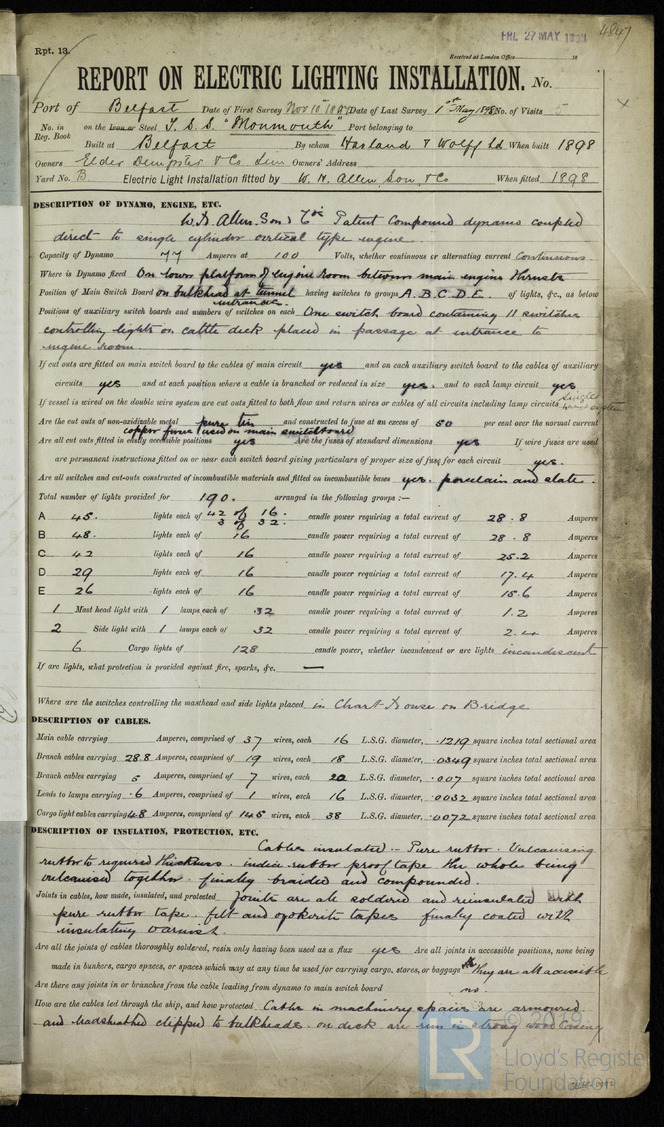 4847
Rpt. 13.
FRI. 27 MAY 1898
Received at London Office 18
REPORT ON ELECTRIC LIGHTING INSTALLATION. No.
Port of Belfast Date of First Survey Nov 10th 1897 Date of Last Survey May 1898 No. of Visits 5
No. in on the Iron or Steel T. S. S. "Monmouth" Port belonging to
Reg. Book
Built at Belfast By whom Harland & Wolff Ld When built 1898
Owners Elder Dempster & Co. Owners' Address
Yard No. B. Electric Light Installation fitted by W. H. Allen, Son, & Co When fitted 1898
DESCRIPTION OF DYNAMO, ENGINE, ETC.
W. H. Allen, Son & Co's Patent Compound dynamo coupled
direct to single cylinder vertical type engine.
Capacity of Dynamo 77 Amperes at 100 Volts, whether continuous or alternating current Continuous.
Where is Dynamo fixed On lower platform of engine room between main engine thrusts
Position of Main Switch Board on bulkhead at tunnel having switches to groups A. B. C. D. E. of lights, &c., as below
entrance.
Positions of auxiliary switch boards and numbers of switches on each One switch board containing 11 switches
controlling lights on cattle deck placed in passage at entrance to
engine room.
If cut outs are fitted on main switch board to the cables of main circuit yes and on each auxiliary switch board to the cables of auxiliary
circuits yes and at each position where a cable is branched or reduced in size yes. and to each lamp circuit yes
If vessel is wired on the double wire system are cut outs fitted to both flow and return wires or cables of all circuits including lamp circuits single
system
Are the cut outs of non-oxidizable metal pure tin and constructed to fuse at an excess of 50 per cent over the normal current
copper fuses used on main switchboard
Are all cut outs fitted in easily accessible positions yes Are the fuses of standard dimensions yes If wire fuses are used
are permanent instructions fitted on or near each switch board giving particulars of proper size of fuse for each circuit yes.
Are all switches and cut-outs constructed of incombustible materials and fitted on incombustible bases yes. porcelain and slate.
Total number of lights provided for 190. arranged in the following groups :—
A 45. lights each of 42 of 16. candle power requiring a total current of 28.8 Amperes
3 of 32.
B 48. lights each of 16 candle power requiring a total current of 28.8 Amperes
C 42 lights each of 16 candle power requiring a total current of 25.2 Amperes
D 29 lights each of 16 candle power requiring a total current of 17.4 Amperes
E 26 lights each of 16 candle power requiring a total current of 15.6 Amperes
1 Mast head light with 1 lamps each of 32 candle power requiring a total current of 1.2 Amperes
2 Side light with 1 lamps each of 32 candle power requiring a total current of 2.4 Amperes
6 Cargo lights of 128 candle power, whether incandescent or arc lights incandescent
If arc lights, what protection is provided against fire, sparks, &c. —
Where are the switches controlling the masthead and side lights placed in Chart House on Bridge
DESCRIPTION OF CABLES.
Main cable carrying Amperes, comprised of 37 wires, each 16 L.S.G. diameter, .1219 square inches total sectional area
Branch cables carrying 28.8 Amperes, comprised of 19 wires, each 18 L.S.G. diameter, .0349 square inches total sectional area
Branch cables carrying 5 Amperes, comprised of 7 wires, each 20 L.S.G. diameter, .007 square inches total sectional area
Leads to lamps carrying .6 Amperes, comprised of 1 wires, each 16 L.S.G. diameter, .0032 square inches total sectional area
Cargo light cables carrying 4.8 Amperes, comprised of 145 wires, each 38 L.S.G. diameter, .0072 square inches total sectional area
DESCRIPTION OF INSULATION, PROTECTION, ETC.
Cables insulated – Pure rubber. Vulcanising
rubber to required thickness. india rubber proof tape the whole being
vulcanised together. finally braided and compounded.
Joints in cables, how made, insulated, and protected Joints are all soldered and reinsulated with
pure rubber tape. felt and ozokerite tapes finally coated with
insulating varnish.
Are all the joints of cables thoroughly soldered, rosin only having been used as a flux yes Are all joints in accessible positions, none being
made in bunkers, cargo spaces, or spaces which may at any time be used for carrying cargo, stores, or baggage They are all accessible
Are there any joints in or branches from the cable leading from dynamo to main switch board no.
How are the cables led through the ship, and how protected Cables in machinery spaces are armoured
and leadsheathed clipped to bulkheads. on deck are run in strong wood casing
© 2019
LR Lloyd's Register
Foundation